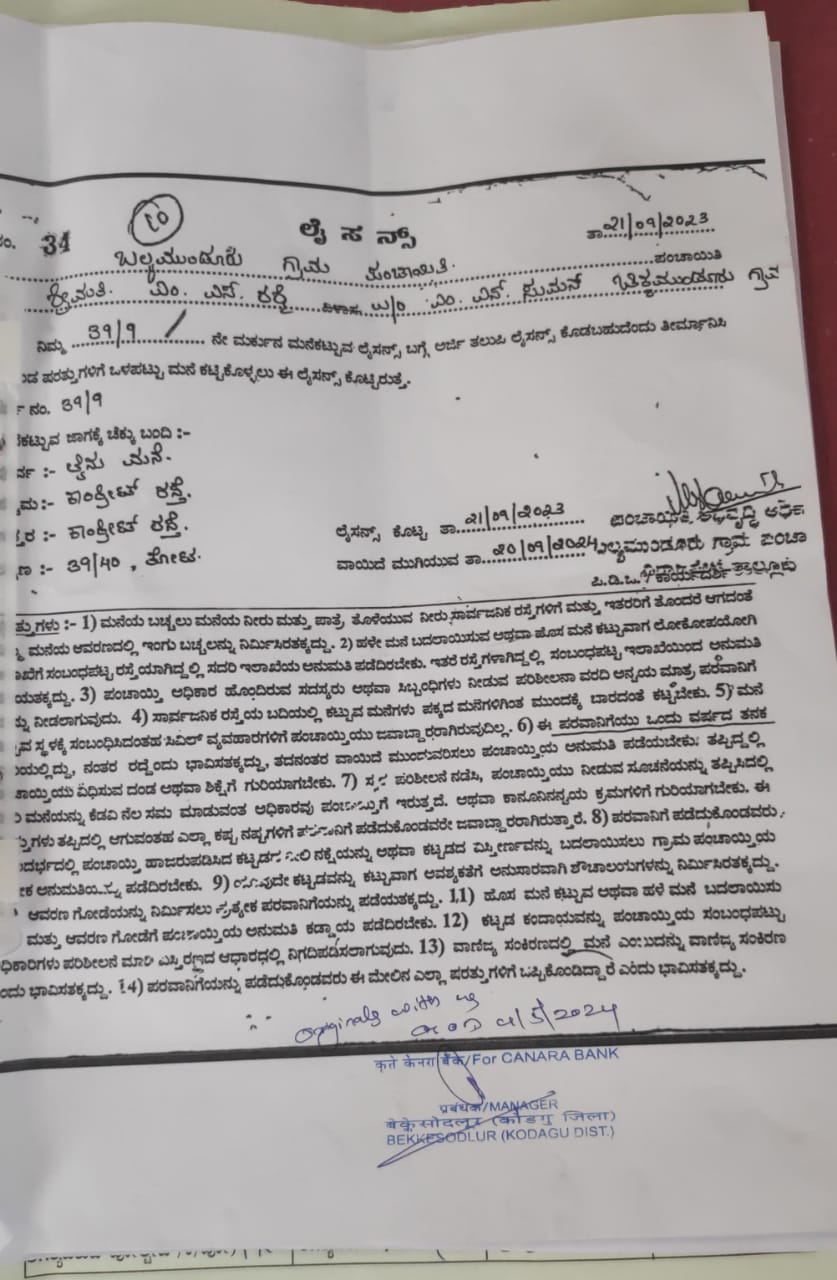 10
ನಂ. 34 ಲೈಸನ್ಸ್ ತಾ 21/09/2023
ಬಲ್ಯಮುಂಡೂರು ಗ್ರಾಮ ಪಂಚಾಯಿತಿ. ಪಂಚಾಯಿತಿ
ಶ್ರೀಮತಿ. ಎಂ. ಎಸ್. ವಿಳಾಸ W/o ಎಂ. ಎನ್. ಸುಮನ್ ಚಿಕ್ಕಮುಂಡೂರು ಗ್ರಾಮ
ನಿಮ್ಮ 39/9 ನೇ ಮರ್ಕುನ ಮನೆಕಟ್ಟುವ ಲೈಸನ್ಸ್ ಬಗ್ಗೆ ಅರ್ಜಿ ತಲುಪಿ ಲೈಸನ್ಸ್ ಕೊಡಬಹುದೆಂದು ತೀರ್ಮಾನಿಸಿ
ಂಡ ಷರತ್ತುಗಳಿಗೆ ಒಳಪಟ್ಟು ಮನೆ ಕಟ್ಟಿಕೊಳ್ಳಲು ಈ ಲೈಸನ್ಸ್ ಕೊಟ್ಟಿರುತ್ತೆ.
ನಂ. 39/9
ಕಟ್ಟುವ ಜಾಗಕ್ಕೆ ಚೆಕ್ಕು ಬಂದಿ :-
ರ್ವ :- ಲೈನು ಮನೆ.
ಮ:- ಕಾಂಕ್ರೀಟ್ ರಸ್ತೆ.
್ತರ :- ಕಾಂಕ್ರೀಟ್ ರಸ್ತೆ.
ಣ :- 39/40, ತೋಟ.
ಲೈಸನ್ಸ್ ಕೊಟ್ಟ ತಾ. 21/09/2023
ವಾಯಿದೆ ಮುಗಿಯುವ ತಾ. 20/09/2024
ಪಂಚಾಯಿತಿ ಅಭಿವೃದ್ಧಿ ಅಧಿಕಾ
ಬಲ್ಯಮುಂಡೂರು ಗ್ರಾಮ ಪಂಚಾ
ಪಿ.ಡಿ.ಒ. / ಕಾರ್ಯದರ್ಶಿ ತಾಲ್ಲೂಕು
ತ್ತುಗಳು :- 1) ಮನೆಯ ಬಚ್ಚಲು ಮನೆಯ ನೀರು ಮತ್ತು ಪಾತ್ರೆ ತೊಳೆಯುವ ನೀರು ಸಾರ್ವಜನಿಕ ರಸ್ತೆಗಳಿಗೆ ಮತ್ತು ಇತರರಿಗೆ ತೊಂದರೆ ಆಗದಂತೆ
ಮನೆಯ ಆವರಣದಲ್ಲಿ ಇಂಗು ಬಚ್ಚಲನ್ನು ನಿರ್ಮಿಸಿರತಕ್ಕದ್ದು. 2) ಹಳೇ ಮನೆ ಬದಲಾಯಿಸುವ ಅಥವಾ ಹೊಸ ಮನೆ ಕಟ್ಟುವಾಗ ಲೋಕೋಪಯೋಗಿ
ಾಖೆಗೆ ಸಂಬಂಧಪಟ್ಟ ರಸ್ತೆಯಾಗಿದ್ದಲ್ಲಿ ಸದರಿ ಇಲಾಖೆಯ ಅನುಮತಿ ಪಡೆದಿರಬೇಕು. ಇತರೆ ರಸ್ತೆಗಳಾಗಿದ್ದಲ್ಲಿ ಸಂಬಂಧಪಟ್ಟ ಇಲಾಖೆಯಿಂದ ಅನುಮತಿ
ಯತಕ್ಕದ್ದು. 3) ಪಂಚಾಯ್ತಿ ಅಧಿಕಾರ ಹೊಂದಿರುವ ಸದಸ್ಯರು ಅಥವಾ ಸಿಬ್ಬಂಧಿಗಳು ನೀಡುವ ಪರಿಶೀಲನಾ ವರದಿ ಅನ್ವಯ ಮಾತ್ರ ಪರವಾನಿಗೆ
ನ್ನು ನೀಡಲಾಗುವುದು. 4) ಸಾರ್ವಜನಿಕ ರಸ್ತೆಯ ಬದಿಯಲ್ಲಿ ಕಟ್ಟುವ ಮನೆಗಳು ಪಕ್ಕದ ಮನೆಗಳಿಗಿಂತ ಮುಂದಕ್ಕೆ ಬಾರದಂತೆ ಕಟ್ಟಬೇಕು. 5) ಮನೆ
ವ ಸ್ಥಳಕ್ಕೆ ಸಂಬಂಧಿಸಿದಂತಹ ಸಿವಿಲ್ ವ್ಯವಹಾರಗಳಿಗೆ ಪಂಚಾಯ್ತಿಯು ಜವಾಬ್ದಾರರಾಗಿರುವುದಿಲ್ಲ. 6) ಈ ಪರವಾನಿಗೆಯು ಒಂದು ವರ್ಷದ ತನಕ
ಯಲ್ಲಿದ್ದು, ನಂತರ ರದ್ದೆಂದು ಭಾವಿಸತಕ್ಕದ್ದು, ತದನಂತರ ವಾಯಿದೆ ಮುಂದುವರಿಸಲು ಪಂಚಾಯ್ತಿಯ ಅನುಮತಿ ಪಡೆಯಬೇಕು. ತಪ್ಪಿದ್ದಲ್ಲಿ
ಚಾಯ್ತಿಯು ವಿಧಿಸುವ ದಂಡ ಅಥವಾ ಶಿಕ್ಷೆಗೆ ಗುರಿಯಾಗಬೇಕು. 7) ಸ್ಥಳ ಪರಿಶೀಲನೆ ನಡೆಸಿ, ಪಂಚಾಯ್ತಿಯು ನೀಡುವ ಸೂಚನೆಯನ್ನು ತಪ್ಪಿಸಿದಲ್ಲಿ
ಮನೆಯನ್ನು ಕೆಡವಿ ನೆಲ ಸಮ ಮಾಡುವಂತ ಅಧಿಕಾರವು ಪಂಚಾಯ್ತಿಗೆ ಇರುತ್ತದೆ. ಅಥವಾ ಕಾನೂನಿನನ್ವಯ ಕ್ರಮಗಳಿಗೆ ಗುರಿಯಾಗಬೇಕು. ಈ
ತ್ತುಗಳು ತಪ್ಪಿದಲ್ಲಿ ಆಗುವಂತಹ ಎಲ್ಲಾ ಕಷ್ಟ ನಷ್ಟಗಳಿಗೆ ಪರವಾನಿಗೆ ಪಡೆದುಕೊಂಡವರೇ ಜವಾಬ್ದಾರರಾಗಿರುತ್ತಾರೆ. 8) ಪರವಾನಿಗೆ ಪಡೆದುಕೊಂಡವರು,
ದರ್ಭದಲ್ಲಿ ಪಂಚಾಯ್ತಿ ಹಾಜರುಪಡಿಸಿದ ಕಟ್ಟಡದ ನೀಲಿ ನಕ್ಷೆಯನ್ನು ಅಥವಾ ಕಟ್ಟಡದ ವಿಸ್ತೀರ್ಣವನ್ನು ಬದಲಾಯಿಸಲು ಗ್ರಾಮ ಪಂಚಾಯ್ತಿಯ
ೇಕ ಅನುಮತಿಯನ್ನು ಪಡೆದಿರಬೇಕು. 9) ಯಾವುದೇ ಕಟ್ಟಡವನ್ನು ಕಟ್ಟುವಾಗ ಅವಶ್ಯಕತೆಗೆ ಅನುಸಾರವಾಗಿ ಶೌಚಾಲಯಗಳನ್ನು ನಿರ್ಮಿಸಿರತಕ್ಕದ್ದು.
ಆವರಣ ಗೋಡೆಯನ್ನು ನಿರ್ಮಿಸಲು ಪ್ರತ್ಯೇಕ ಪರವಾನಿಗೆಯನ್ನು ಪಡೆಯತಕ್ಕದ್ದು. 11) ಹೊಸ ಮನೆ ಕಟ್ಟುವ ಅಥವಾ ಹಳೆ ಮನೆ ಬದಲಾಯಿಸು
ಮತ್ತು ಆವರಣ ಗೋಡೆಗೆ ಪಂಚಾಯ್ತಿಯ ಅನುಮತಿ ಕಡ್ಡಾಯ ಪಡೆದಿರಬೇಕು. 12) ಕಟ್ಟಡ ಕಂದಾಯವನ್ನು ಪಂಚಾಯ್ತಿಯ ಸಂಬಂಧಪಟ್ಟು
ಧಿಕಾರಿಗಳು ಪರಿಶೀಲನೆ ಮಾಡಿ ವಿಸ್ತಿರಣದ ಆಧಾರದಲ್ಲಿ ನಿಗದಿಪಡಿಸಲಾಗುವುದು. 13) ವಾಣಿಜ್ಯ ಸಂಕಿರಣದಲ್ಲಿ ಮನೆ ಎಂಬುದನ್ನು ವಾಣಿಜ್ಯ ಸಂಕಿರಣ
ಂದು ಭಾವಿಸತಕ್ಕದ್ದು. 14) ಪರವಾನಿಗೆಯನ್ನು ಪಡೆದುಕೊಂಡವರು ಈ ಮೇಲಿನ ಎಲ್ಲಾ ಷರತ್ತುಗಳಿಗೆ ಒಪ್ಪಿಕೊಂಡಿದ್ದಾರೆ ಎಂದು ಭಾವಿಸತಕ್ಕದ್ದು.
originals with us
on 4/5/2024
कृते केनरा बैंक/For CANARA BANK
प्रबंधक/MANAGER
बेक्केसोदलूर (कोडगु जिला)
BEKKESODLUR (KODAGU DIST.)